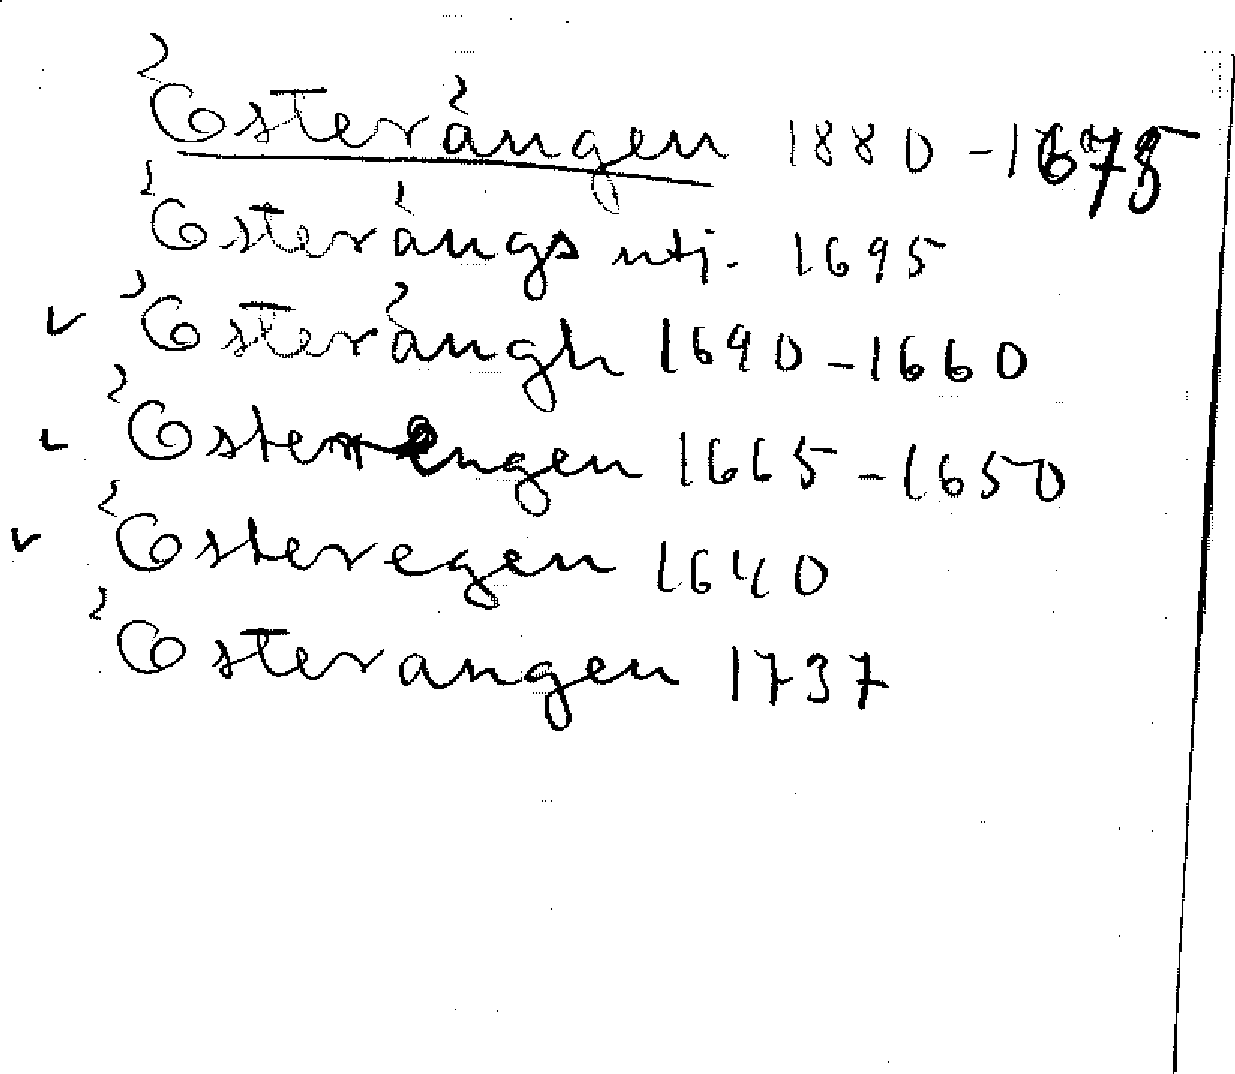 Österängen 1880-1675
Österängs utj. 1695
✓ Österängh 1690-1660
✓ Österengen 1665-1650
✓ Österegen 1640
Österangen 1737